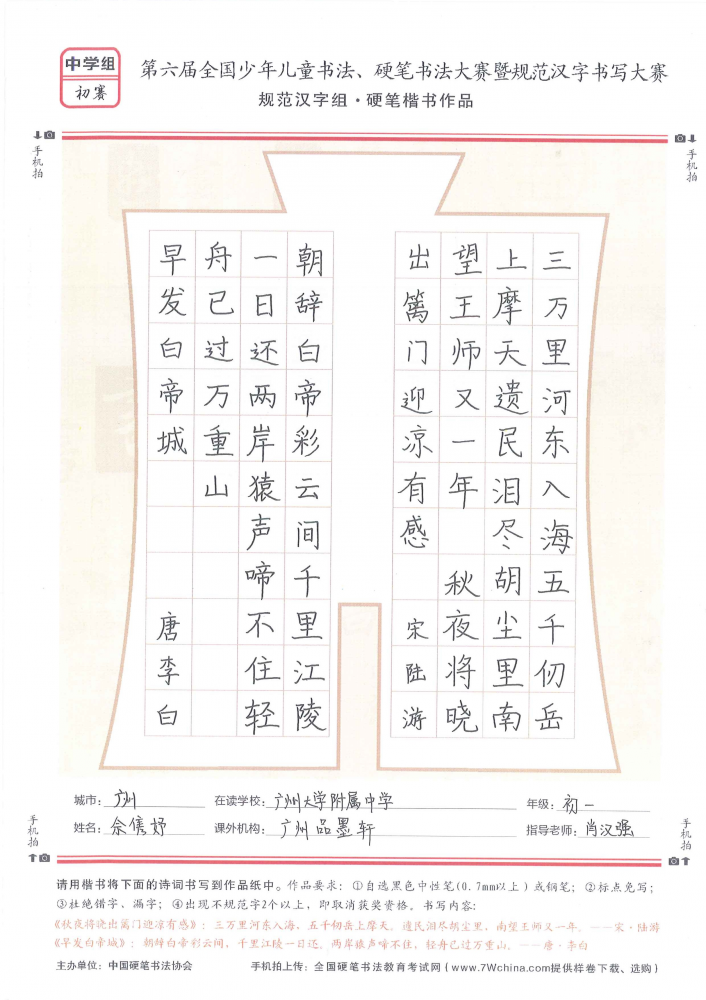 中学组
初赛
第六届全国少年儿童书法、硬笔书法大赛暨规范汉字书写大赛
规范汉字组·硬笔楷书作品
手机拍
手机拍
三万里河东入海五千仞岳
上摩天遗民泪尽胡尘里南
望王师又一年 秋夜将晓
出篱门迎凉有感 宋陆游
朝辞白帝彩云间千里江陵
一日还两岸猿声啼不住轻
舟已过万重山
早发白帝城 唐李白
城市：广州 在读学校：广州大学附属中学 年级：初一
姓名： 课外机构：广州品墨轩 指导老师：肖汉强
手机拍
手机拍
请用楷书将下面的诗词书写到作品纸中。作品要求：①自选黑色中性笔(0.7mm以上)或钢笔；②标点免写；
③杜绝错字、漏字；④出现不规范字2个以上，即取消获奖资格。书写内容：
《秋夜将晓出篱门迎凉有感》：三万里河东入海，五千仞岳上摩天。遗民泪尽胡尘里，南望王师又一年。——宋·陆游
《早发白帝城》：朝辞白帝彩云间，千里江陵一日还。两岸猿声啼不住，轻舟已过万重山。——唐·李白
主办单位：中国硬笔书法协会 手机拍上传：全国硬笔书法教育考试网（www.7Wchina.com提供样卷下载、选购）